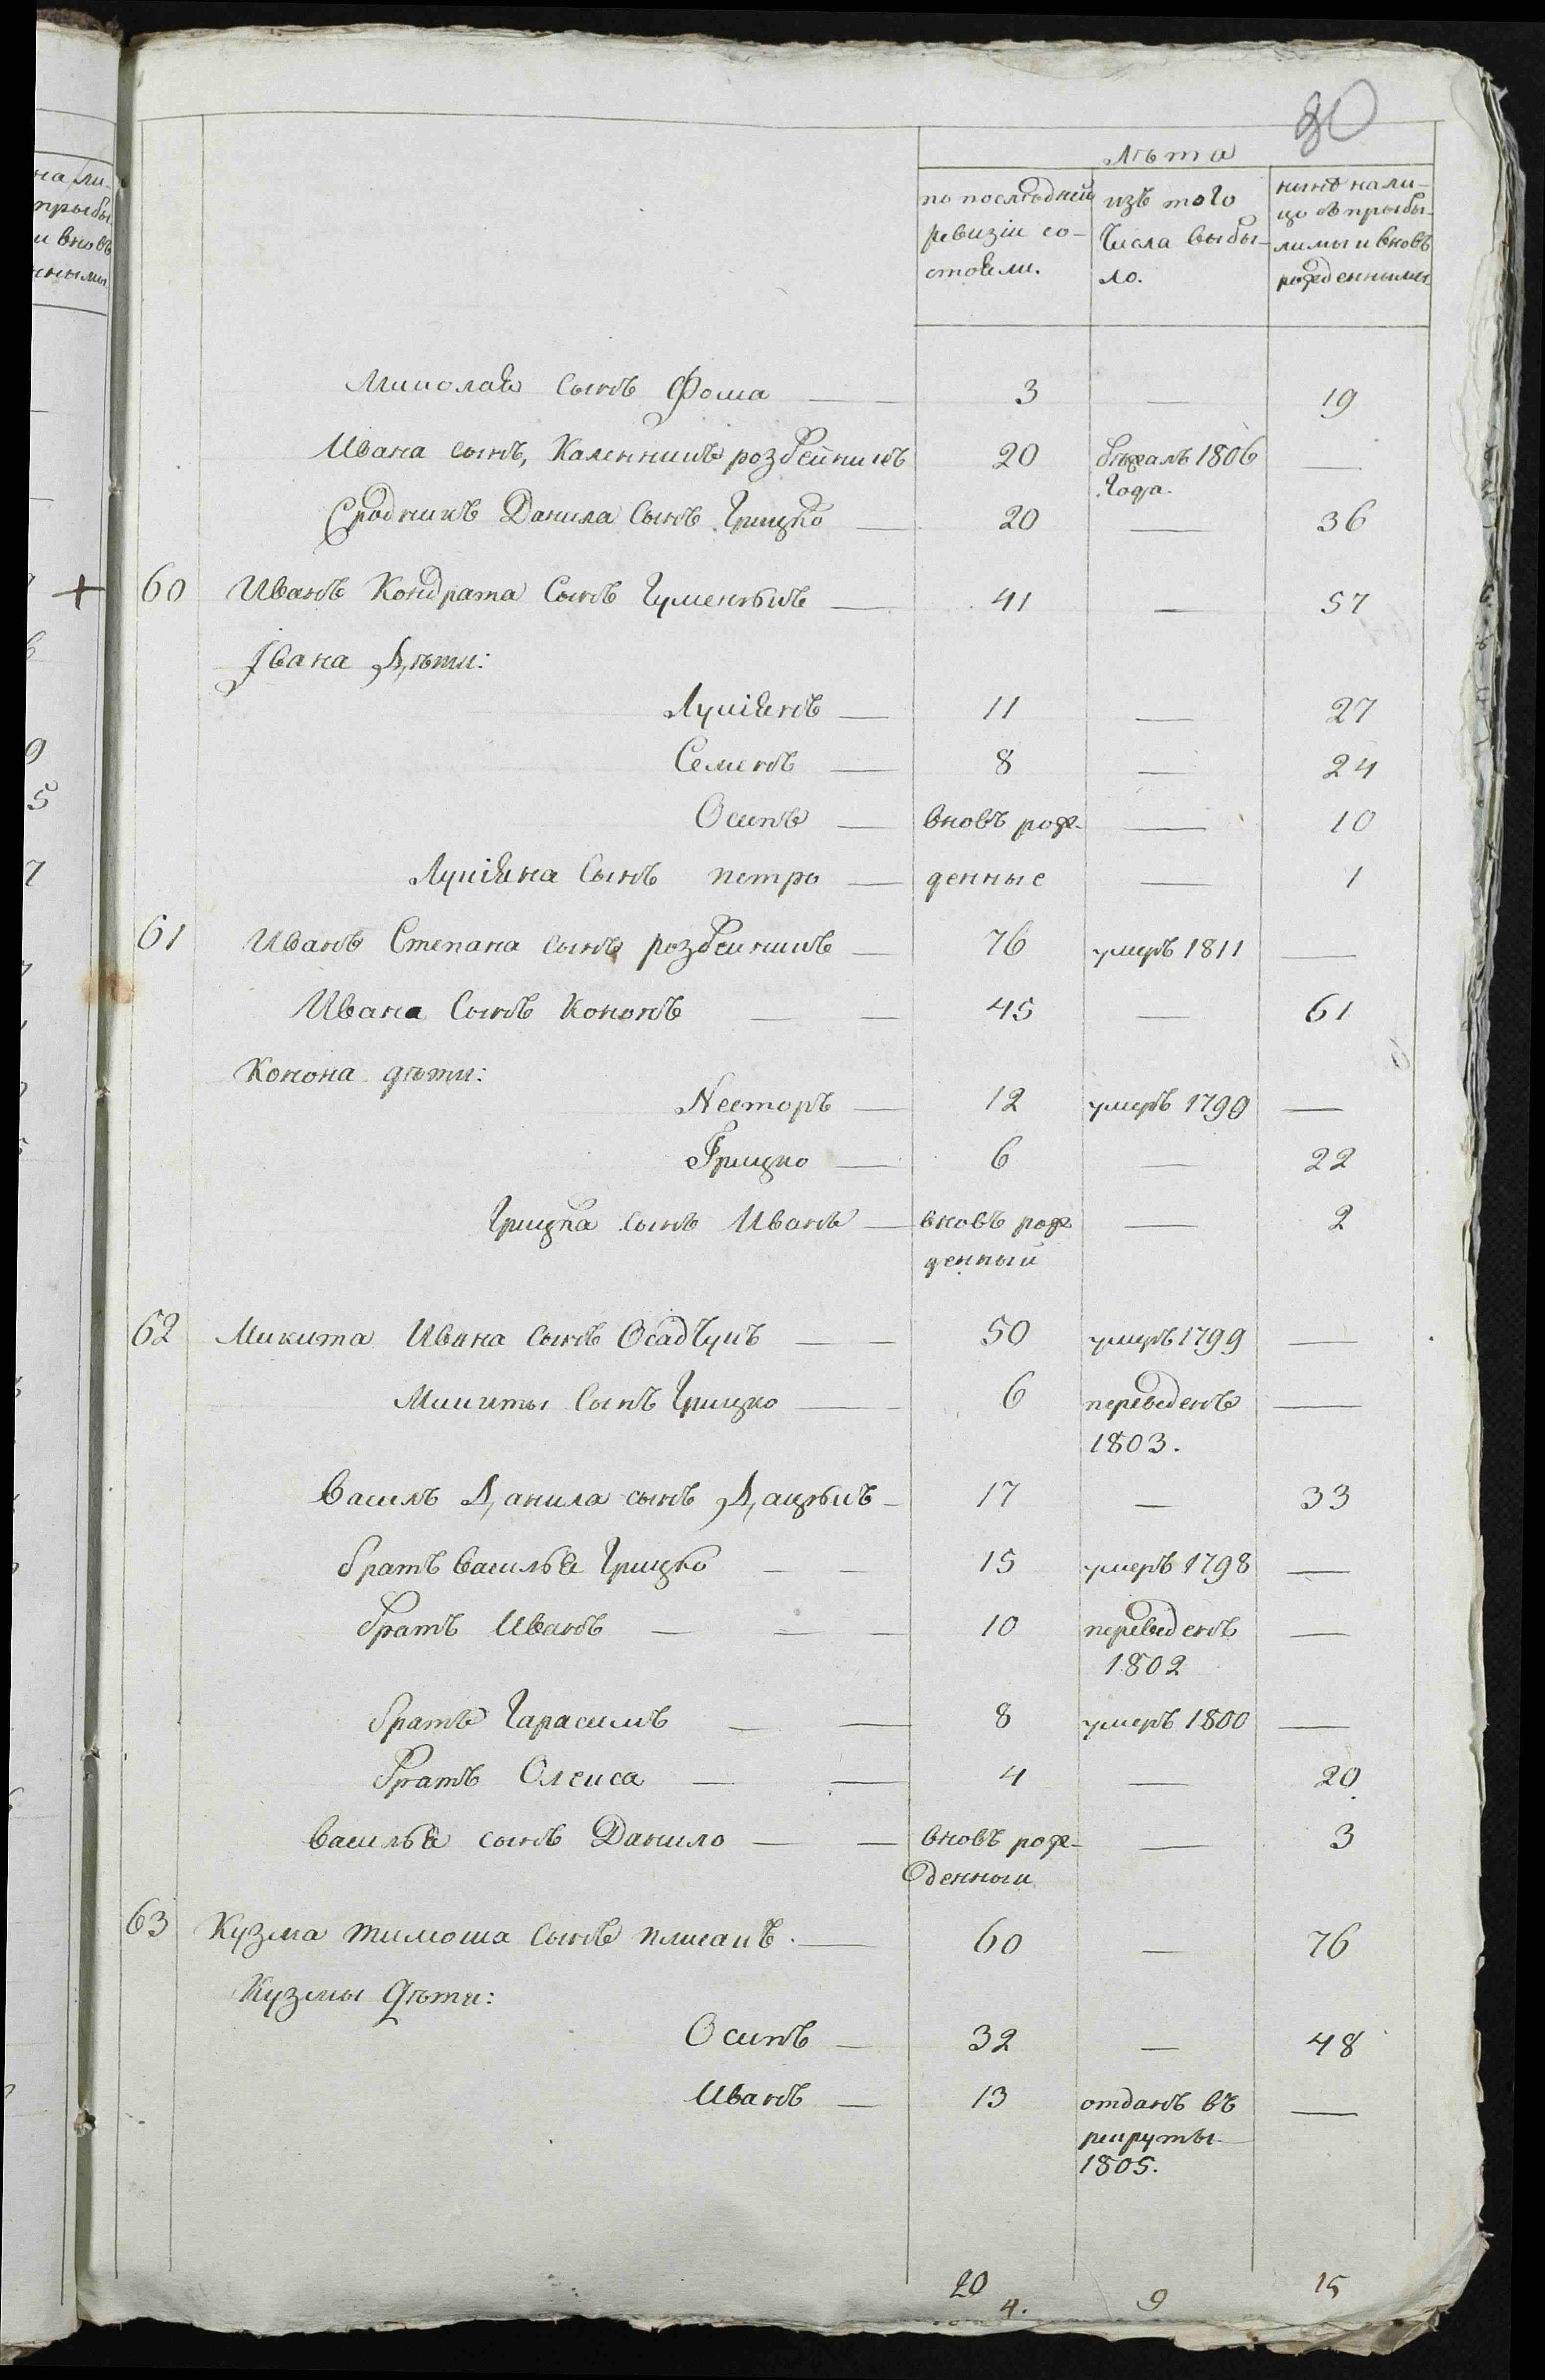 80
лѣта
по последней ревизіи со-
стояли.
изъ того
числа выбы-
ло.
нынѣ нали-
цо съ прыбы-
лимы и вновь
рожденными
Миколая сынъ Фома — 3 — 19
Ивана сынъ, Каленникъ розбейникъ 20 бѣжалъ 1806 —
года.
Сродникъ Данила сынъ Грицко — 20 — 36
60 Иванъ Кондрата сынъ Гуменюкъ — 41 — 57
Івана Дѣти:
Лукіянъ — 11 — 27
Семенъ — 8 — 24
Осипъ — вновъ рож- — 10
Лукіяна сынъ петро — денные — 1
61 Иванъ Степана сынъ розбейникъ — 76 умеръ 1811 —
Ивана сынъ Кононъ — — 45 — 61
Конона дѣти:
Несторъ — 12 умеръ 1790 —
Грицко — 6 — 22
Грицка сынъ Иванъ — вновъ рож — 2
денный
62 Микита Ивана сынъ Осадчукъ — — 50 умеръ 1799 —
Микиты сынъ Грицко — 6 переведенъ —
1803.
Василь Данила сынъ Дацюкъ — 17 — 33
братъ Василья Грицко — — 15 умеръ 1798 —
братъ Иванъ — — — 10 переведенъ —
1802
братъ Гарасимъ — — 8 умеръ 1800 —
братъ Олекса — — 4 — 20
Василья сынъ Данило — — вновъ рож- — 3
денныи
63 Кузма тимоша сынъ плисакъ. — 60 — 76
Кузмы Дѣти:
Осипъ — 32 — 48
Иванъ — 13 отданъ въ —
рекруты
1805.
20 9 15
4.